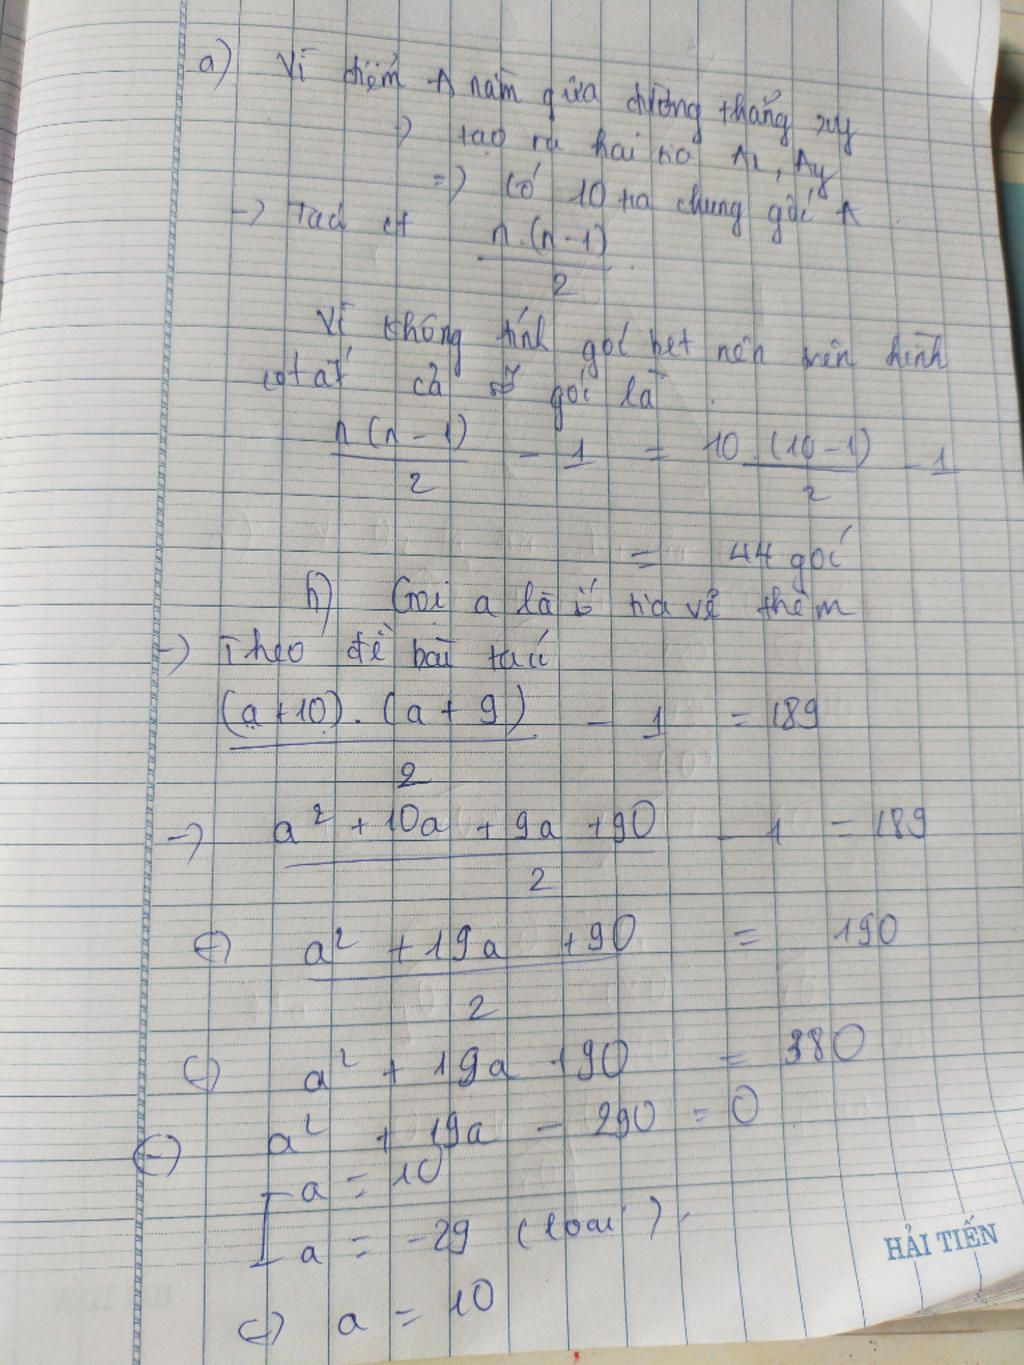 a) Vì điểm A nằm giữa đường thẳng xy
=) tạo ra hai tia Ax, Ay
=) Có 10 tia chung gốc A.
-) Ta có ct n.(n-1)/2.
Vì không tính góc bẹt nên trên hình
có tất cả số góc là.
n(n-1)/2 - 1 = 10.(10-1)/2 - 1
= 44 góc
b) Gọi a là số tia vẽ thêm
-) Theo đề bài ta có
(a+10).(a+9)/2 - 1 = 189
-) a² + 10a + 9a + 90/2 - 1 = 189
(=) a² + 19a + 90/2 = 190
(=) a² + 19a + 90 = 380
(=) a² + 19a - 290 = 0
[ a = 10
a = -29 (loại).
(=) a = 10
HẢI TIẾN